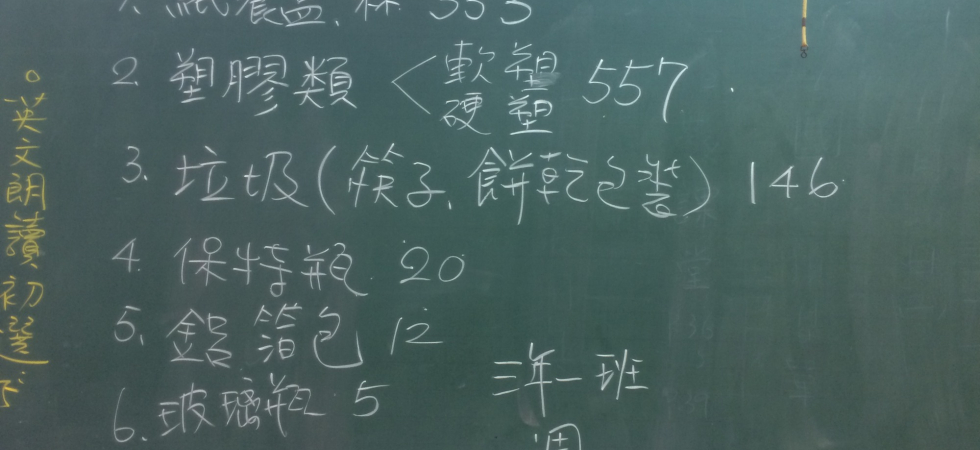 1. 紙餐盒、杯 553
2. 塑膠類 < 軟塑 硬塑 557
3. 垃圾(筷子、餅乾包裝) 146
4. 保特瓶 20
5. 鋁箔包 12
6. 玻璃瓶 5
三年一班
週
。英文朗讀初選